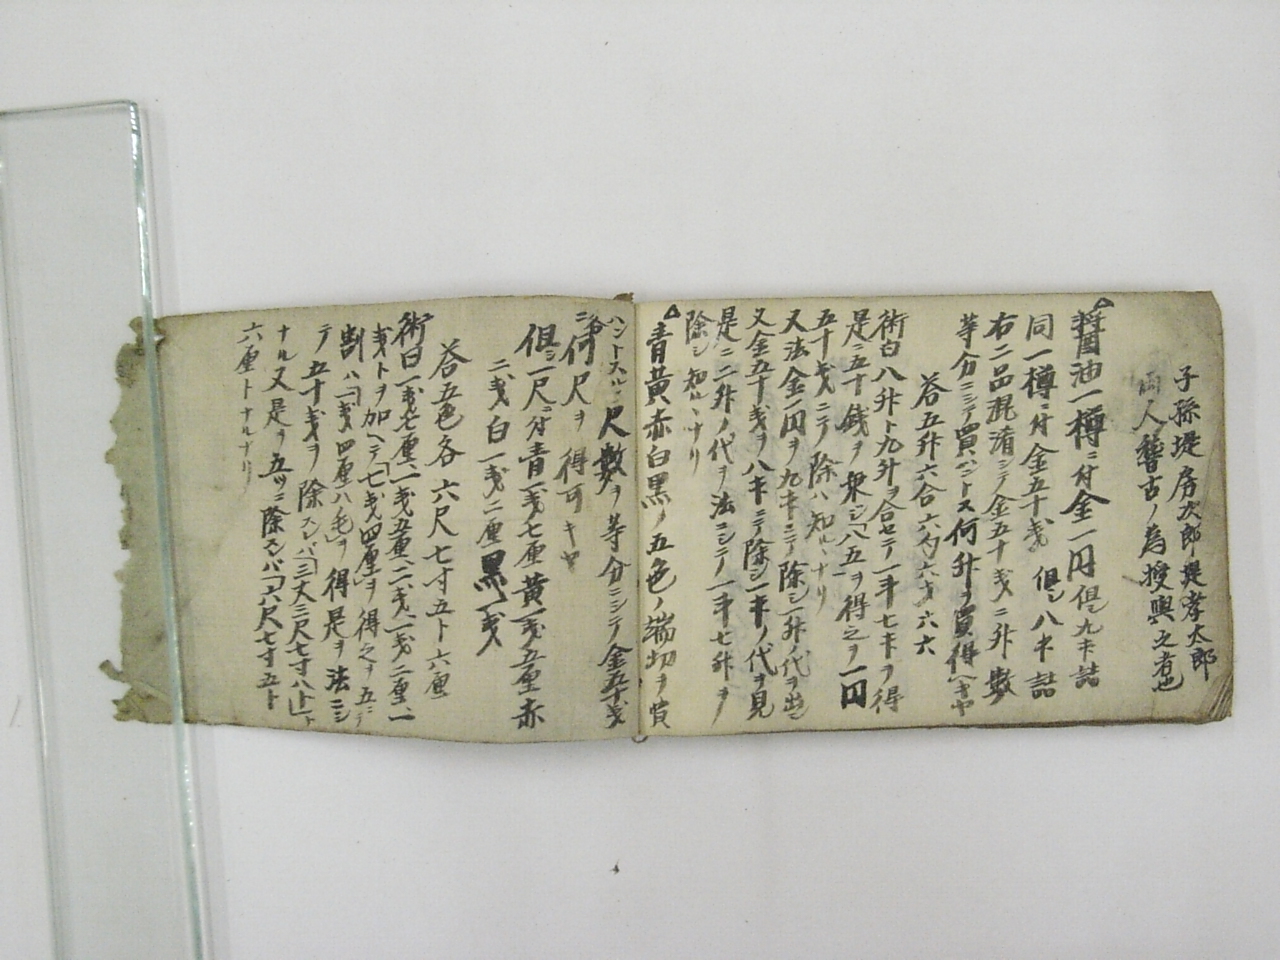 子孫堤房次郎堤孝太郎
両人稽古ノ為授與之者也
醤油一樽ニ付金一円但シ九升詰
同一樽ニ付金五十銭 但シ八升詰
右二品混淆シテ金五十銭ニ升数
等分ニシテ買ハントス何升ヲ買得ヘキヤ
答五升六合六勺六才六六
術曰八升ト九升ヲ合セテ一斗七升ヲ得
是ニ五十銭ヲ乗シ「八五」ヲ得之ヲ一円
五十銭ニテ除ハ知ルヽナリ
又法金一円ヲ九升ニテ除シ一升ノ代ヲ出シ
又金五十銭ヲ八升ニテ除シ一升ノ代ヲ見
是ニ二升ノ代ヲ法ニシテ一斗七升ヲ
除シ知ルヽナリ
△青黄赤白黒ノ五色ノ端切ヲ買
ハントスルニ尺数ヲ等分ニシテ金五十銭
ニテ何尺ヲ得可キヤ
但シ一尺ニ付青一銭七厘黄一銭五厘赤
二銭白一銭二厘黒一銭
答五色各六尺七寸五ト六厘
術曰一銭七厘、一銭五厘、二銭、一銭二厘、一
銭トヲ加ヘテ「七銭四厘」ヲ得之ヲ五ニテ
割ハ「一銭四厘八毛」ヲ得是ヲ法ニシ
テ五十銭ヲ除スレバ「三丈三尺七寸八ト」ト
ナル又是ヲ五ツニ除スレバ「六尺七寸五ト
六厘トナルナリ